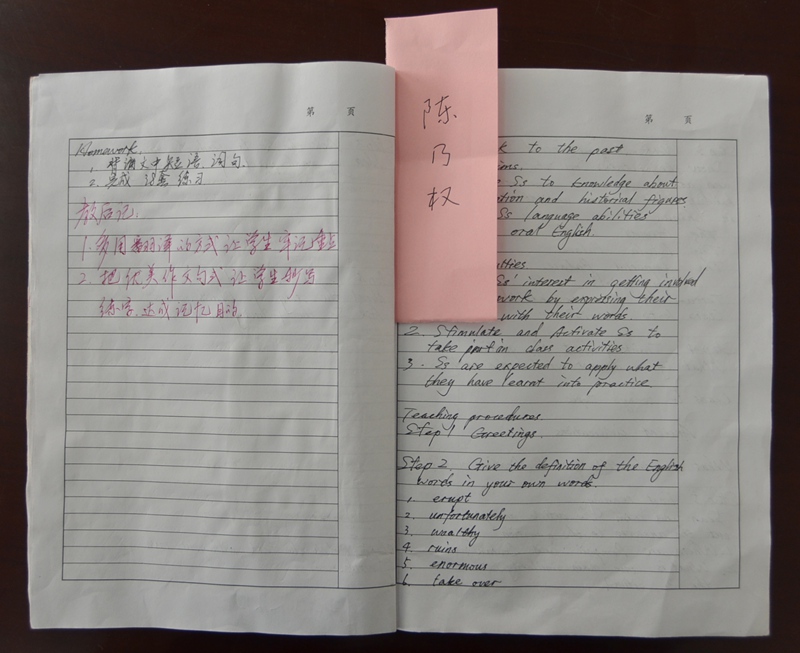 第 页
Homework.
1. 背课文中短语、词句.
2. 完成 设套 练习
教后记:
1. 多用翻译的方式让学生牢记重点
2. 把优美作文句式让学生抄写
练字,达成记忆目的.
陈乃权
第 页
k to the past
ims.
Ss to knowledge about
ation and historical figures
Ss language abilities
oral English.
ulties
Ss' interest in getting involved
work by expressing their
with their words.
2. Stimulate and Activate Ss to
take part in class activities
3. Ss are expected to apply what
they have learnt into practice
Teaching procedures.
Step 1 Greetings.
Step 2 Give the definition of the English
words in your own words.
1. erupt
2. unfortunately
3. wealthy
4. ruins
5. enormous
6. take over